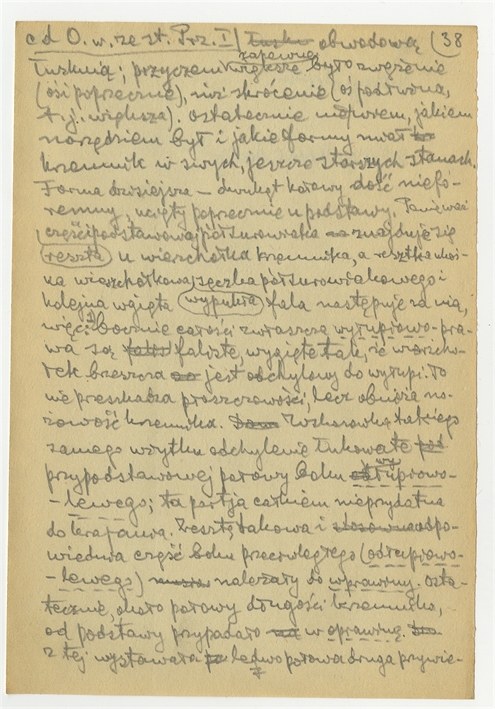 c d O. w. ze st. Prz. I) obwodową (38
łuskują; przyczem zapewne większe było zwężenie
(osi poprzecznej), niż skrócenie (o podłużna,
t. j. większa). Ostatecznie niepewnem, jakiem
narzędziem był i jakie formy miał
krzemnik w swych jeszcze starszych stanach.
Forma dzisiejsza – dwukąt kątowy dość niefo-
remny, ucięty poprzecznie u podstawy. Ponieważ
części podstawowej półsurowiaka znajduje się
reszta u wierzchołka krzemnika, a resztka
ka wierzchołkowa sęczka półsurowiakowego i
kolejna wgięta wypukła fala następuje za nią,
więc bocznie całości zwłaszcza wyłupiowo-pra-
wa są faliste, wygięte tak, że wierzcho-
łek brzeszcza jest odchylony do wyłupi. To
nie przeszkadza płaszczowości, lecz obniża no-
żowość krzemnika. takiego
samego użytku odchylenie łukowate
przypodstawowej połowy boku odłupiowo-
-lewego; ta partja całkiem nieprzydatna
do krajania. Zresztą takowa i odpo-
wiednia część boku przeciwległego (odłupiowo-
-lewego) należały do oprawiny. Osta-
tecznie, około połowy długości krzemnika,
od podstawy przypadało w oprawinę.
z tej wystawała ledwo połowa druga przywie-